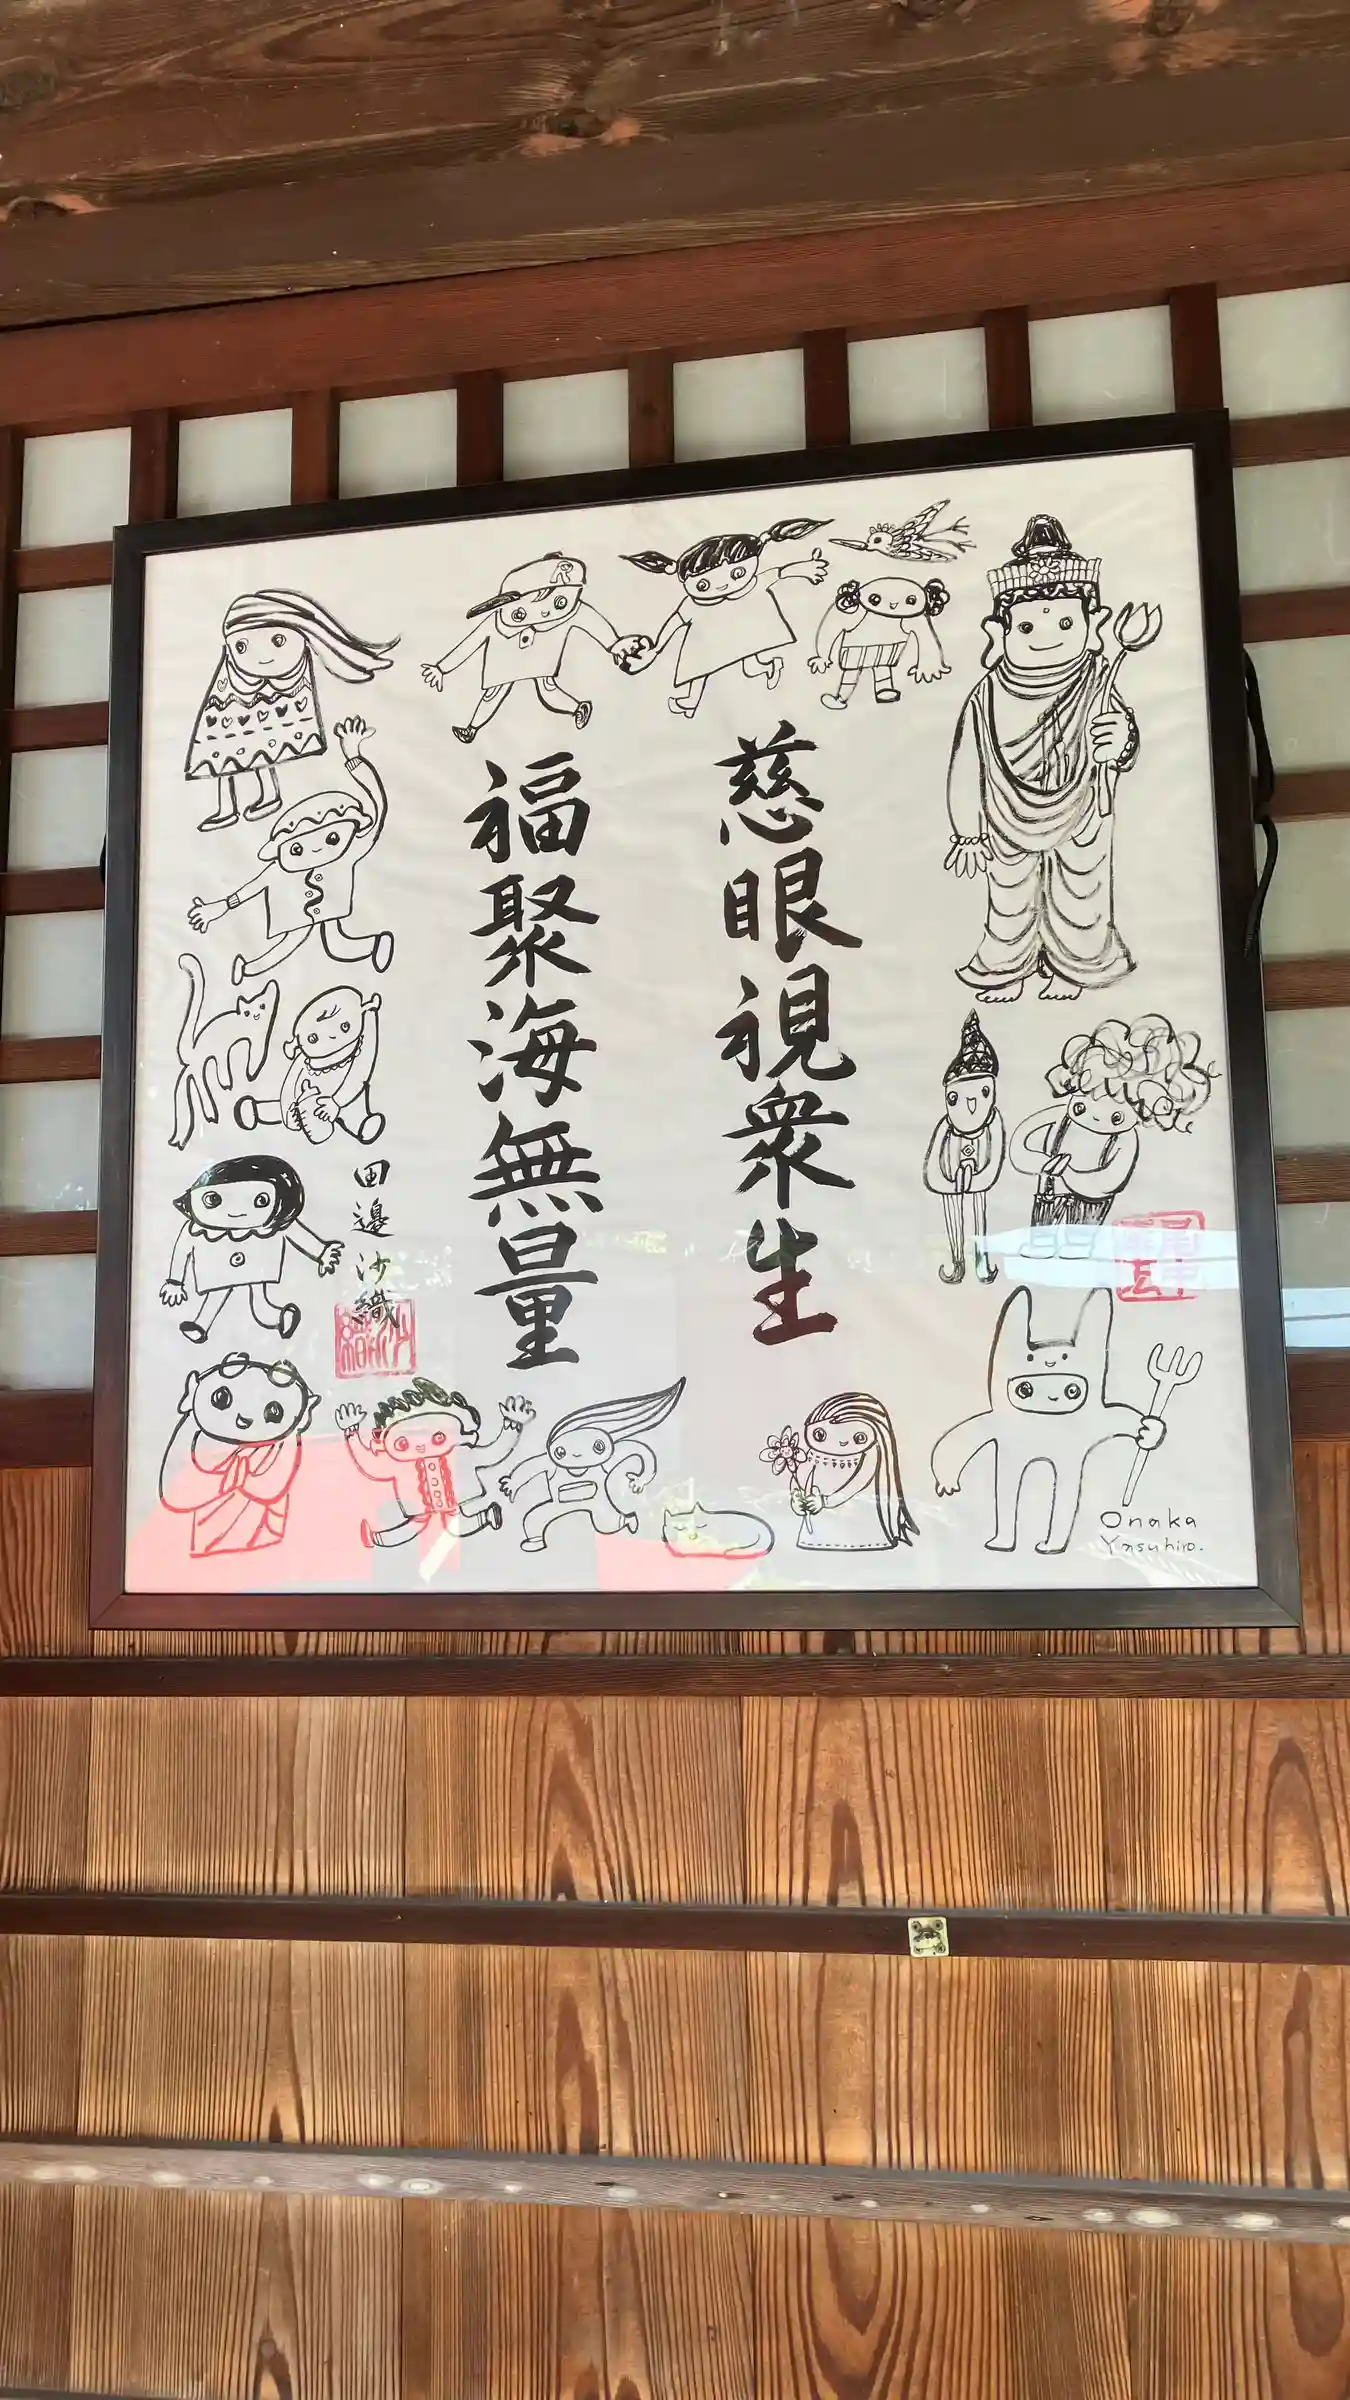 慈眼視衆生
福聚海無量
田邊沙織
Onaka
Yasuhiro.
R